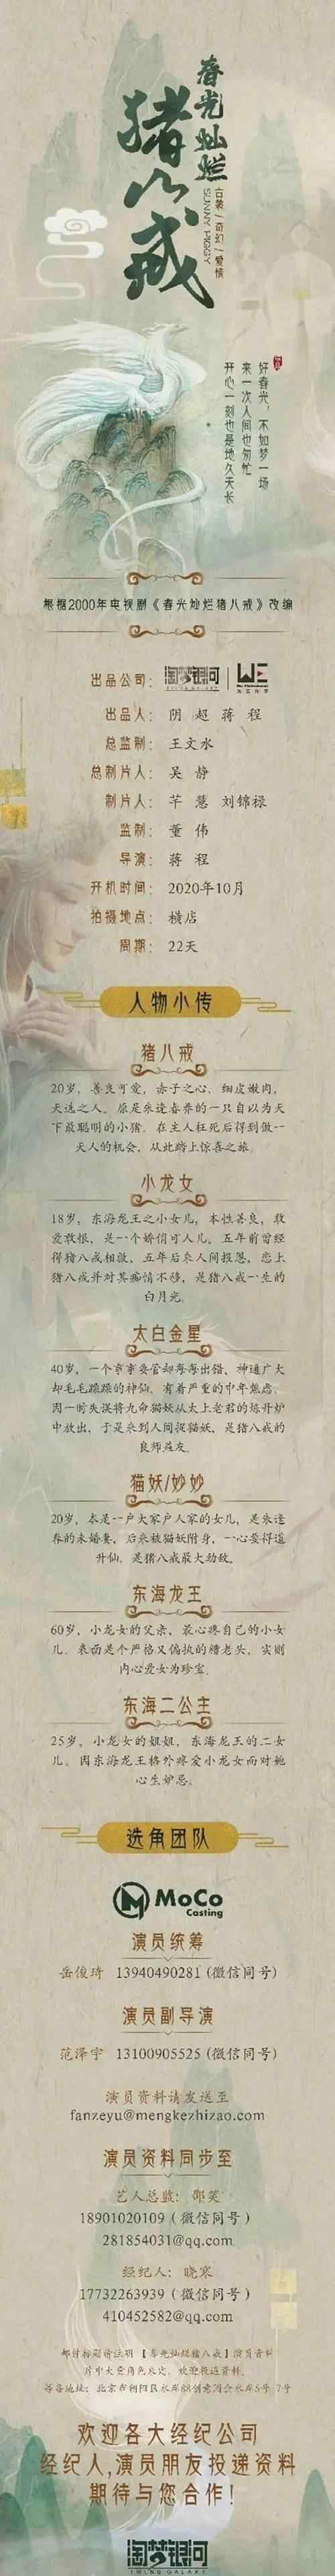 春光灿烂
猪八戒
古装/奇幻/爱情
SUNNY PIGGY
好春光，不如梦一场
来一次人间也匆忙
开心一刻也是地久天长
根据2000年电视剧《春光灿烂猪八戒》改编
出品公司： 淘梦银河 | WE
出品人： 阴 超 蒋 程
总监制： 王文水
总制片人： 吴 静
制片人： 芊 慧 刘锦禄
监制： 董 伟
导演： 蒋 程
开机时间： 2020年10月
拍摄地点： 横店
周期： 22天
人物小传
猪八戒
20岁，善良可爱，赤子之心，细皮嫩肉，
天选之人。原是朱逢春养的一只自以为天
下最聪明的小猪。在主人枉死后得到做一
天人的机会，从此踏上惊喜之旅。
小龙女
18岁，东海龙王之小女儿，本性善良，敢
爱敢恨，是一个娇俏可人儿。五年前曾经
得猪八戒相救，五年后来人间报恩，恋上
猪八戒并对其痴情不移，是猪八戒一生的
白月光。
太白金星
40岁，一个事事要管却每每出错、神通广大
却毛毛躁躁的神仙，有着严重的中年焦虑。
因一时失误将九命猫妖从太上老君的炼丹炉
中放出，于是来到人间捉猫妖，是猪八戒的
良师益友。
猫妖/妙妙
20岁，本是一户大家户人家的女儿，是朱逢
春的未婚妻，后来被猫妖附身，一心要得道
升仙，是猪八戒最大劲敌。
东海龙王
60岁，小龙女的父亲，最心疼自己的小女
儿，表面是个严格又偏执的糟老头，实则
内心爱女为珍宝。
东海二公主
25岁，小龙女的姐姐，东海龙王的二女
儿。因东海龙王格外疼爱小龙女而对她
心生妒忌。
选角团队
MoCo
Casting
演员统筹
岳俊琦 13940490281 (微信同号)
演员副导演
范泽宇 13100905525 (微信同号)
演员资料请发送至
fanzeyu@mengkezhizao.com
演员资料同步至
艺人总监：邵笑
18901020109（微信同号）
281854031@qq.com
经纪人：晓寒
17732263939（微信同号）
410452582@qq.com
邮件标题请注明【春光灿烂猪八戒】演员资料
片中大量角色未定，欢迎投递资料。
筹备地址：北京市朝阳区水岸88创意河会水岸5号-7号
欢迎各大经纪公司
经纪人,演员朋友投递资料
期待与您合作！
淘梦银河
TMENG GALAXY